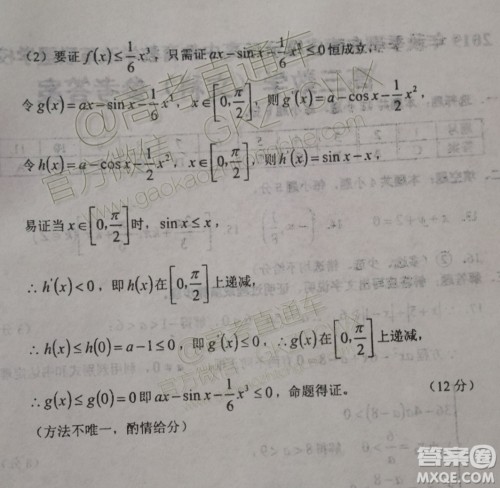 (2) 要证 f(x)≤1/6x³，只需证 ax−sinx−1/6x³≤0 恒成立，
令 g(x)=ax−sinx−1/6x³，x∈[0,π/2]，则 g'(x)=a−cosx−1/2x²，
令 h(x)=a−cosx−1/2x²，x∈[0,π/2]，则 h'(x)=sinx−x，
易证当 x∈[0,π/2] 时，sinx≤x，
∴h'(x)<0，即 h(x) 在 [0,π/2] 上递减，
∴h(x)≤h(0)=a−1≤0，即 g'(x)≤0，∴g(x) 在 [0,π/2] 上递减，
∴g(x)≤g(0)=0 即 ax−sinx−1/6x³≤0，命题得证。 (12分)
(方法不唯一，酌情给分)
@高考直通车
答案圈
MXQE.COM